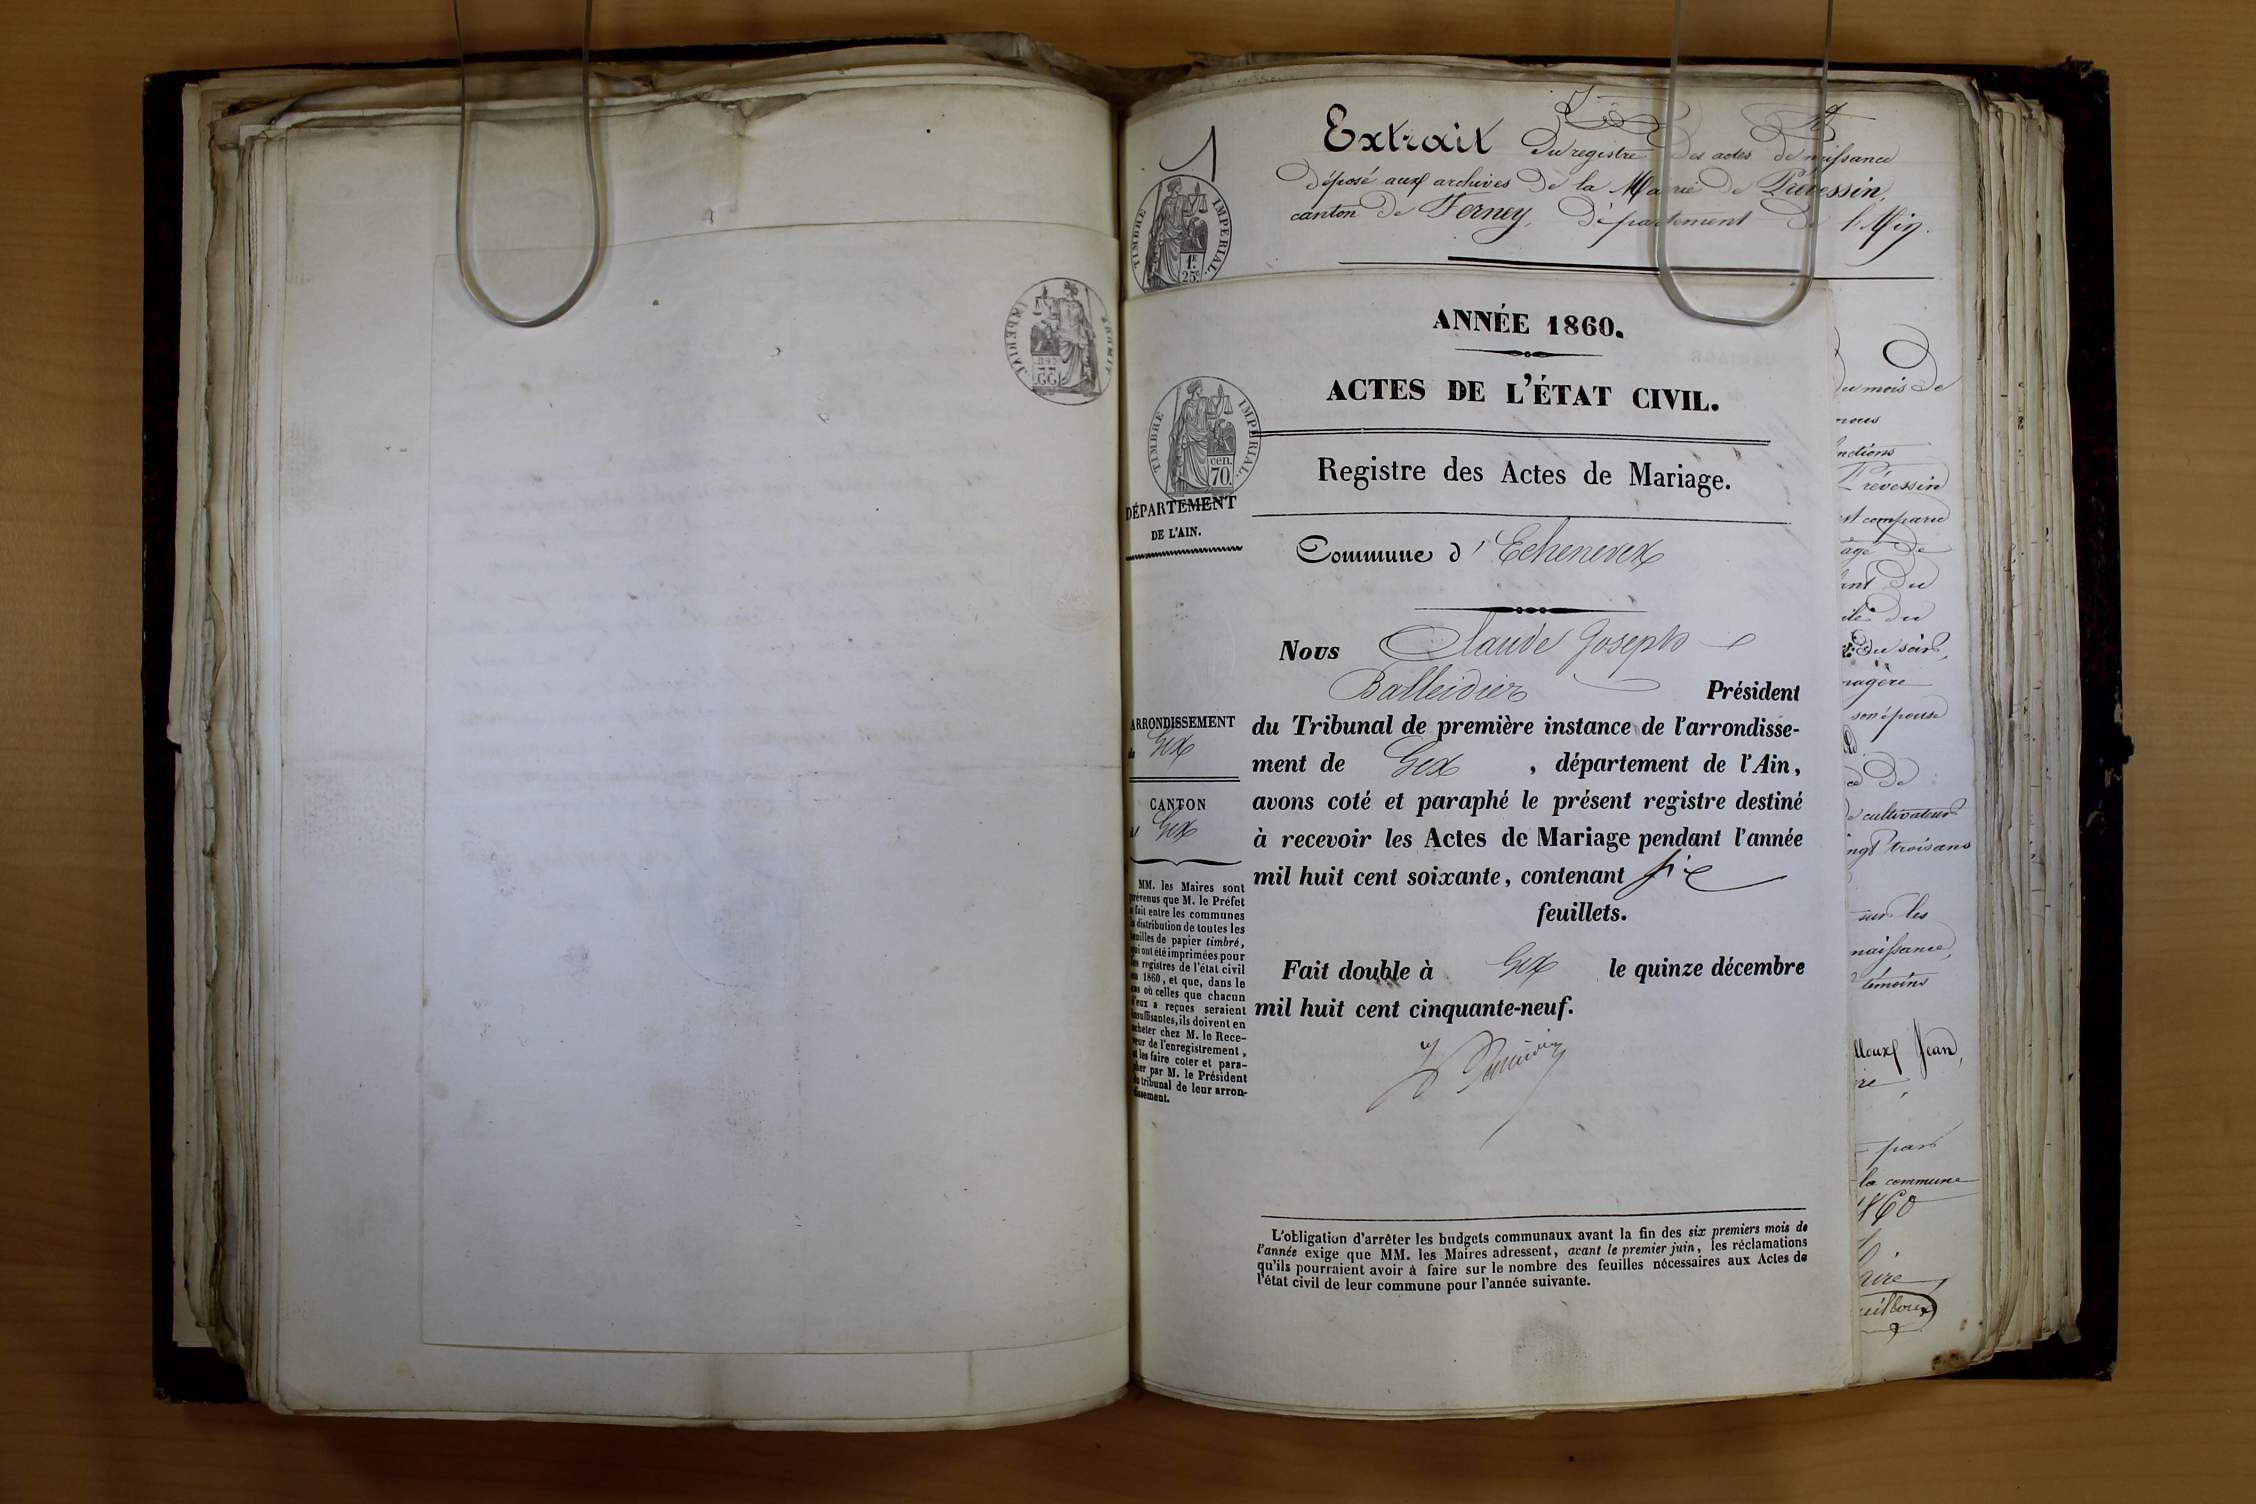 Extrait Du registre des actes de naissance
Déposé aux archives De la Mairie De Prévessin,
canton De Ferney, Département De l'Ain.
TIMBRE IMPÉRIAL.
1F
25c
ANNÉE 1860.
ACTES DE L'ÉTAT CIVIL.
TIMBRE IMPÉRIAL.
cen.
70.
Registre des Actes de Mariage.
DÉPARTEMENT
DE L'AIN.
Commune d'Echenevex
Nous Claude Joseph
Balleidier Président
ARRONDISSEMENT
de Gex
du Tribunal de première instance de l'arrondisse-
ment de Gex, département de l'Ain,
CANTON
d Gex
avons coté et paraphé le présent registre destiné
à recevoir les Actes de Mariage pendant l'année
mil huit cent soixante, contenant six
feuillets.
Fait double à Gex le quinze décembre
mil huit cent cinquante-neuf.
MM. les Maires sont
prévenus que M. le Préfet
a fait entre les communes
la distribution de toutes les
feuilles de papier timbré,
qui ont été imprimées pour
les registres de l'état civil
en 1860, et que, dans le
cas où celles que chacun
d'eux a reçues seraient
insuffisantes, ils doivent en
acheter chez M. le Rece-
veur de l'enregistrement,
et les faire coter et para-
pher par M. le Président
du tribunal de leur arron-
dissement.
L'obligation d'arrêter les budgets communaux avant la fin des six premiers mois de
l'année exige que MM. les Maires adressent, avant le premier juin, les réclamations
qu'ils pourraient avoir à faire sur le nombre des feuilles nécessaires aux Actes de
l'état civil de leur commune pour l'année suivante.
du mois de
Prévessin
comparu
âge de
du
du
du soir,
son épouse
de
cultivateur
trois ans
sur les
naissance,
témoins
Jean,
par
la commune
1860